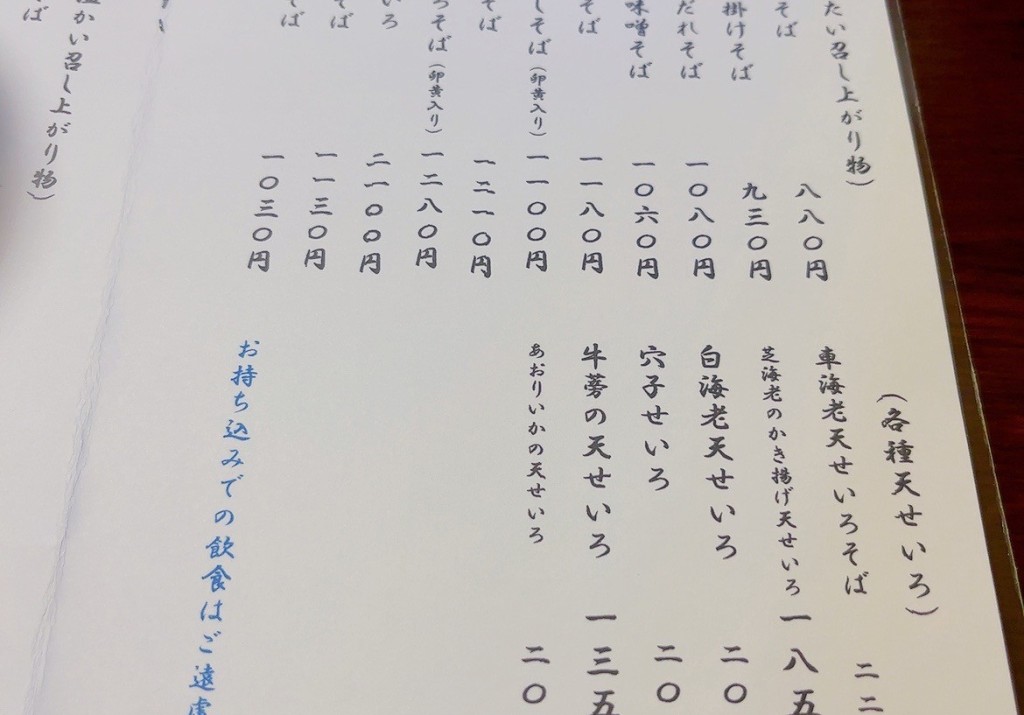 たい召し上がり物)
そば
掛けそば
だれそば
味噌そば
そば
しそば(卵黄入り)
そば
そば(卵黄入り)
いろ
そば
そば
八八〇円
九三〇円
一〇八〇円
一〇六〇円
一一八〇円
一一〇〇円
一二一〇円
一二八〇円
二一〇〇円
一一三〇円
一〇三〇円
(各種天せいろ)
車海老天せいろそば 二二
芝海老のかき揚げ天せいろ 一八五
白海老天せいろ 二〇
穴子せいろ 二〇
牛蒡の天せいろ 一三五
あおりいかの天せいろ 二〇
お持ち込みでの飲食はご遠慮
かい召し上がり物)
そば